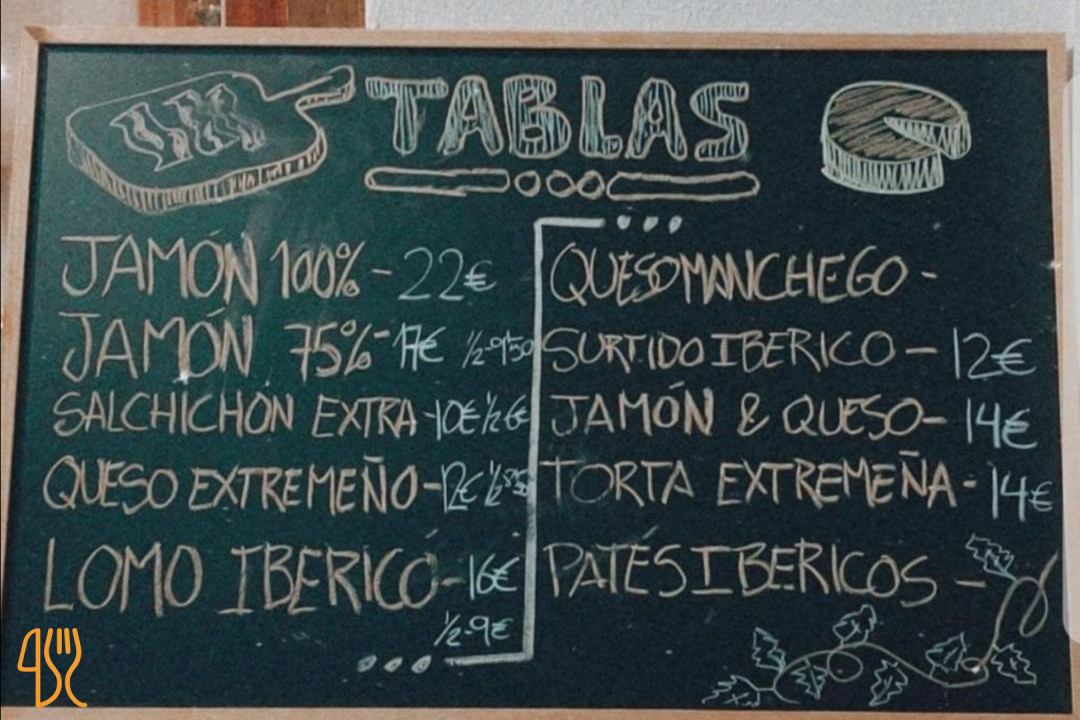 TABLAS
JAMÓN 100% - 22€
JAMÓN 75% - 17€ 1/2-9'50
SALCHICHÓN EXTRA - 10€ 1/2 6€
QUESO EXTREMEÑO - 12€ 1/2
LOMO IBERICO - 16€
1/2-9€
QUESO MANCHEGO -
SURTIDO IBERICO - 12€
JAMÓN & QUESO - 14€
TORTA EXTREMEÑA - 14€
PATÉS IBERICOS -